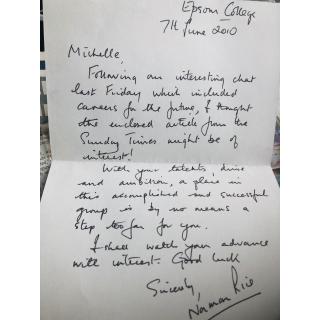 Epsom College
7th June 2010
Michelle,
Following an interesting chat
last Friday which included
careers for the future, I thought
the enclosed article from the
Sunday Times might be of
interest!
With your talents, drive
and ambition, a place in
this accomplished and successful
group is by no means a
step too far for you.
I shall watch your advance
with interest - Good luck
Sincerely,
Norman Rice